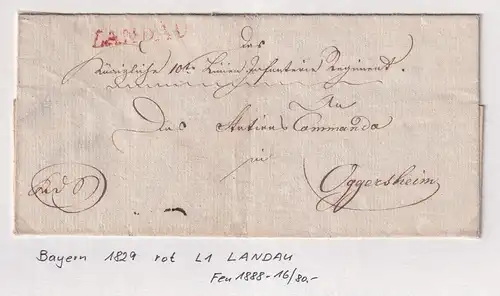 LANDAU
das
Königliche 10te Linien Infanterie Regiment.
An
Das Stations Commando
in
Oggersheim
Bayern 1829 rot L1 LANDAU
Feu 1888-16/80.-